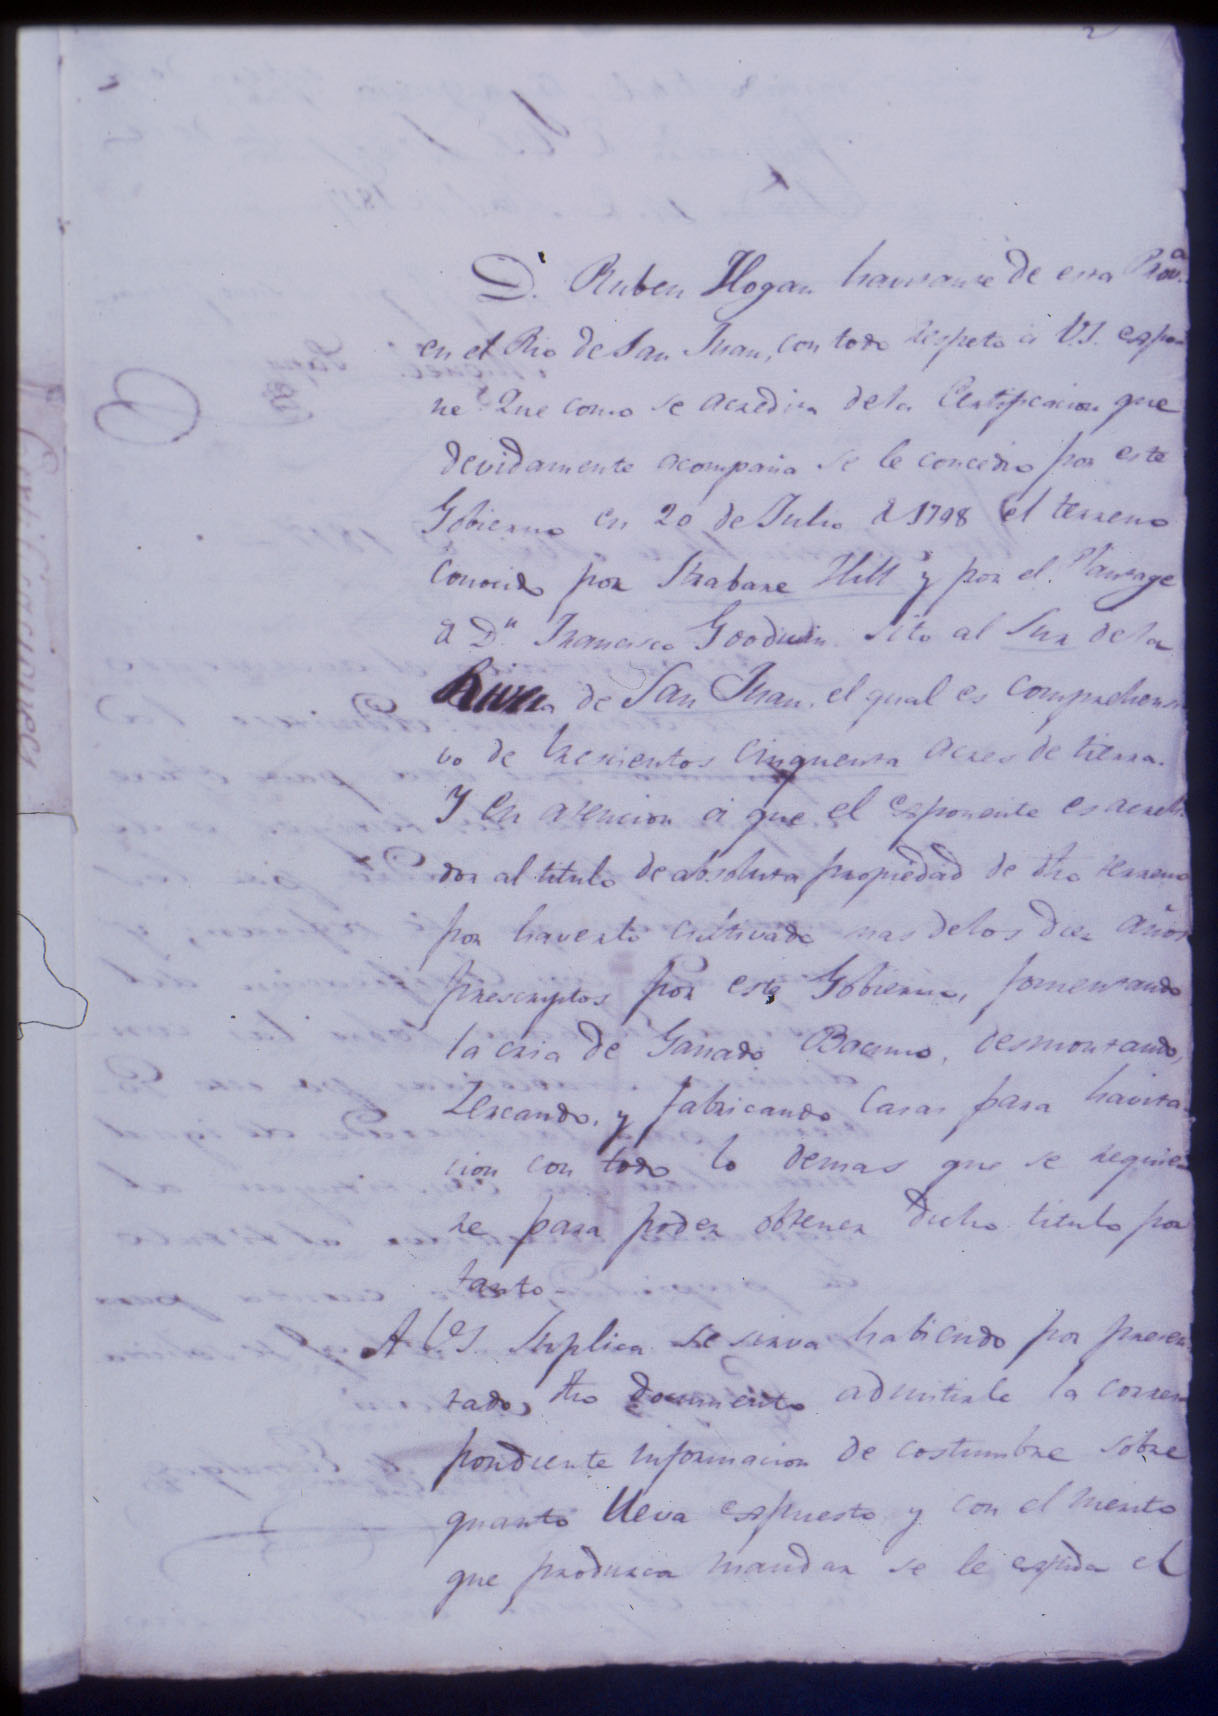 2
D. Ruben Hogan havitante de esta Prova
en el Rio de San Juan, con todo respeto á VS. espo-
ne: Que como se acredita dela Certificacion que
devidamente acompaña se le concedio por este
Gobierno en 20 de Julio d 1798 el terreno
conocido por Strabane Hill y por el Plantage
d Dn Francisco Goodwin sito al Sur de la
de San Juan, el qual es comprehensi
vo de trescientos cinquenta acres de tierra.
Y en atencion á que el esponente es acree-
dor al titulo de absoluta propiedad de dho terreno
por haverlo cultivado mas delos diez años
prescriptos por este Gobierno, fomentando
la cria de Ganado Bacuno, desmontando,
Zercando, y fabricando Casas para havita-
cion con todo lo demas que se requie-
re para poder obtener dicho titulo por
tanto
A V.S. Suplica se sirva habiendo por presen-
tado dho documento admitirle la corres-
pondiente informacion de costumbre sobre
quanto lleva espuesto y con el merito
que produsca mandar se le espida el
Certificaciones